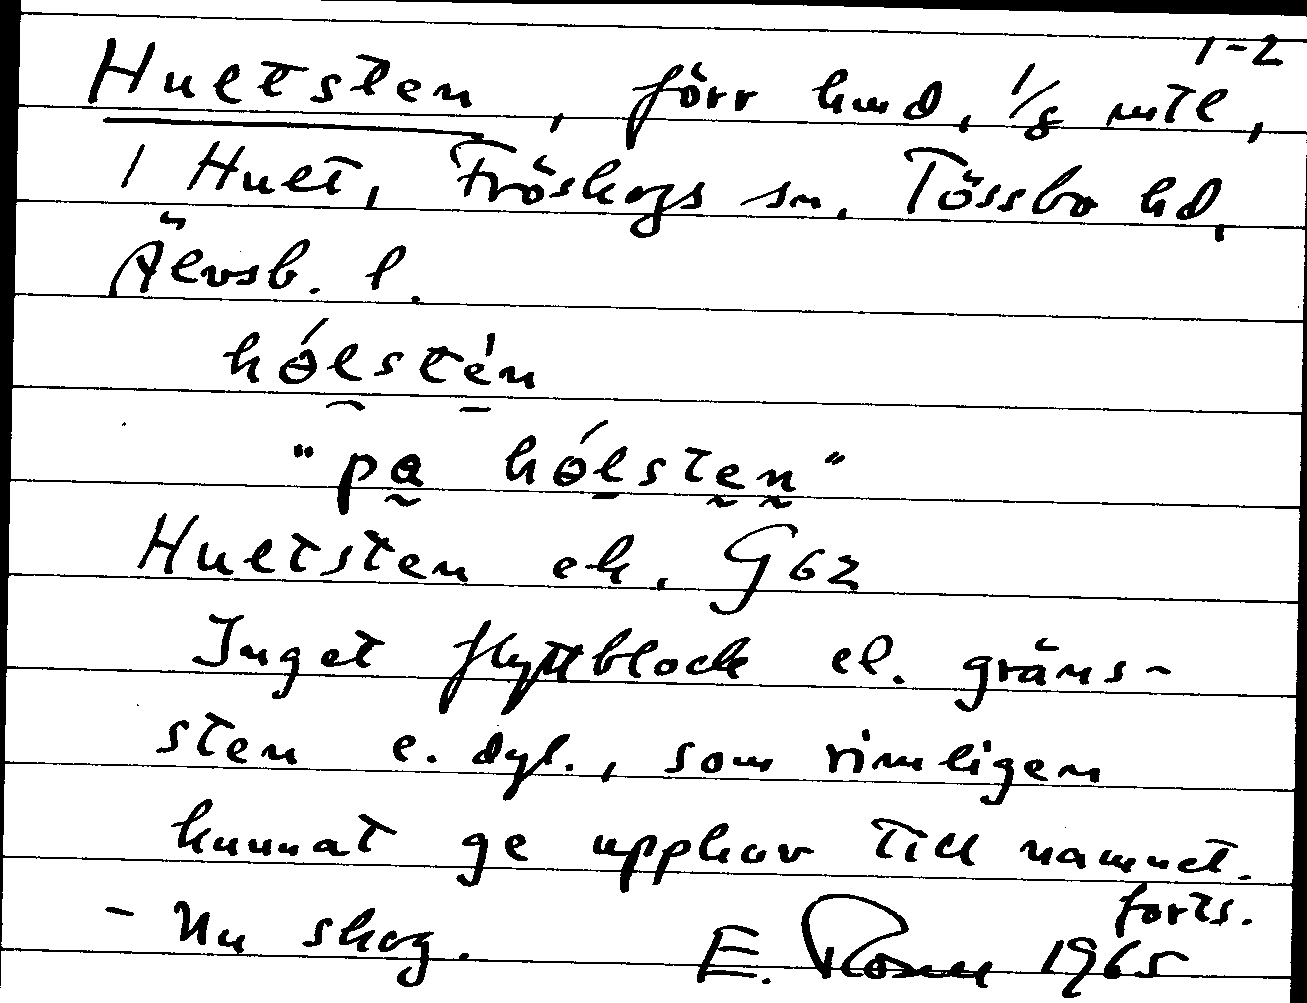 1-2
Hultsten, förr hmd, 1/8 mtl,
i Hult, Fröskogs sn. Tössbo hd,
Älvsb. l.
hólstén
"pa hólsten"
Hultsten ek. G 62
Inget flyttblock el. gräns-
sten e. dyl., som rimligen
kunnat ge upphov till namnet.
forts.
- Nu skog. E. 1965